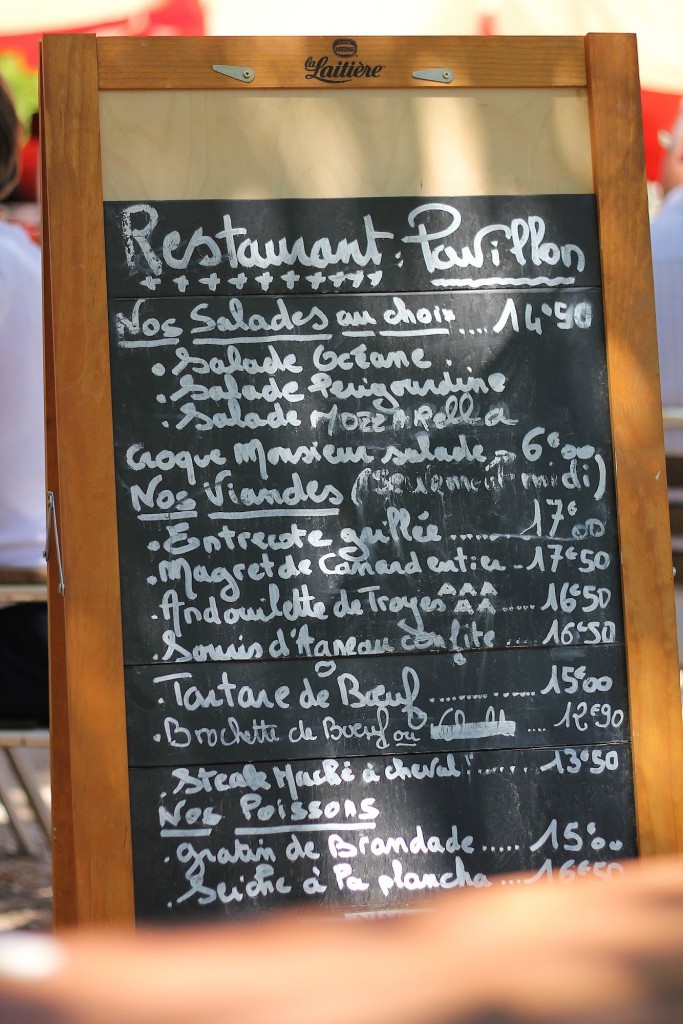 la Laitière
Restaurant: Pavillon
Nos Salades au choix .... 14€90
• Salade Océane
• Salade Perigourdine
• Salade Mozzarella
Croque Monsieur salade - 6€00
Nos Viandes (Seulement midi)
• Entrecote grillée ...... 17€00
• Magret de Canard entier - 17€50
• Andouillette de Troyes AAAAA ..... 16€50
• Souris d'Agneau confite .... 16€50
• Tartare de Bœuf .............. 15€00
• Brochette de Boeuf ou .... 12€90
• Steak Haché à cheval ! ....... 13€50
Nos Poissons
• Gratin de Brandade ..... 15€00
• Seiche à la plancha ... 16€50